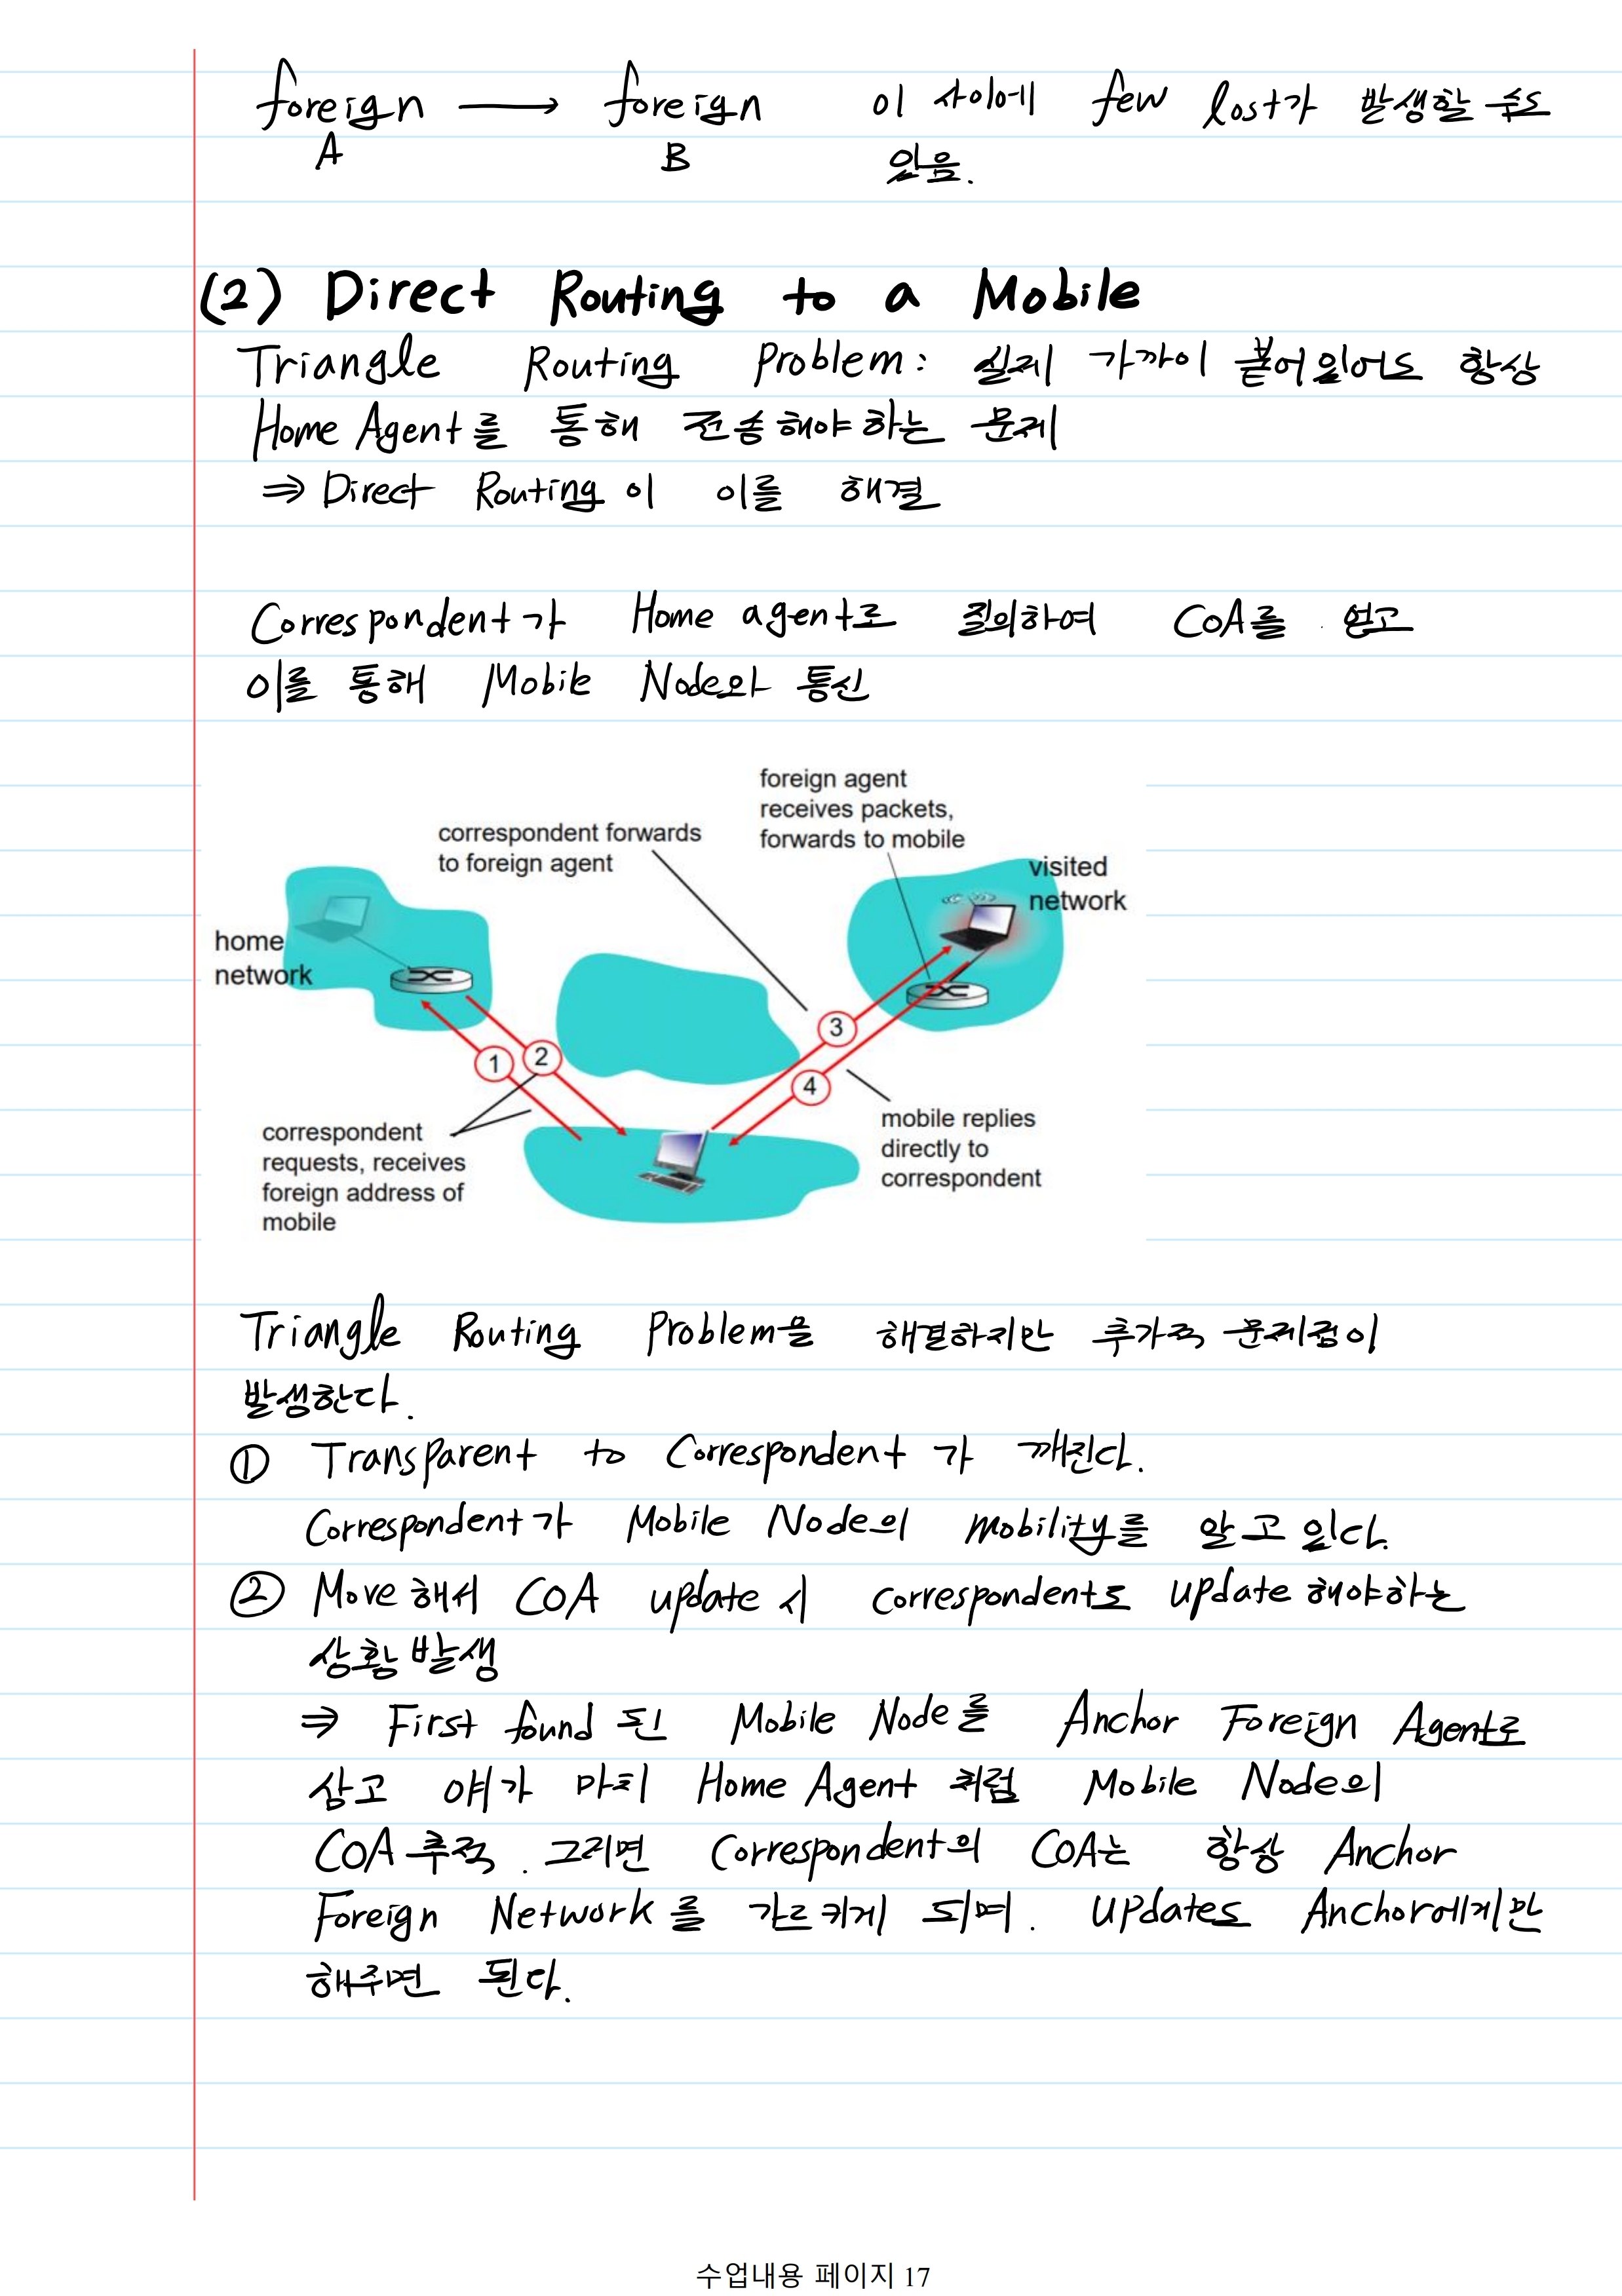 foreign → foreign 이 사이에 few lost가 발생할 수도
A B 있음.
(2) Direct Routing to a Mobile
Triangle Routing Problem: 실제 가까이 붙어있어도 항상
Home Agent를 통해 전송해야하는 문제
⇒ Direct Routing이 이를 해결
Correspondent가 Home agent로 질의하여 CoA를 얻고
이를 통해 Mobile Node와 통신
foreign agent
receives packets,
forwards to mobile
correspondent forwards
to foreign agent
visited
network
home
network
3
1 2
4
correspondent
requests, receives
foreign address of
mobile
mobile replies
directly to
correspondent
Triangle Routing Problem을 해결하지만 추가적 문제점이
발생한다.
① Transparent to Correspondent가 깨진다.
Correspondent가 Mobile Node의 mobility를 알고 있다.
② Move해서 COA update시 correspondent도 update해야하는
상황 발생
⇒ First found 된 Mobile Node를 Anchor Foreign Agent로
삼고 얘가 마치 Home Agent처럼 Mobile Node의
COA 추적. 그러면 Correspondent의 COA는 항상 Anchor
Foreign Network를 가르키게 되며. update도 Anchor에게만
해주면 된다.
수업내용 페이지 17